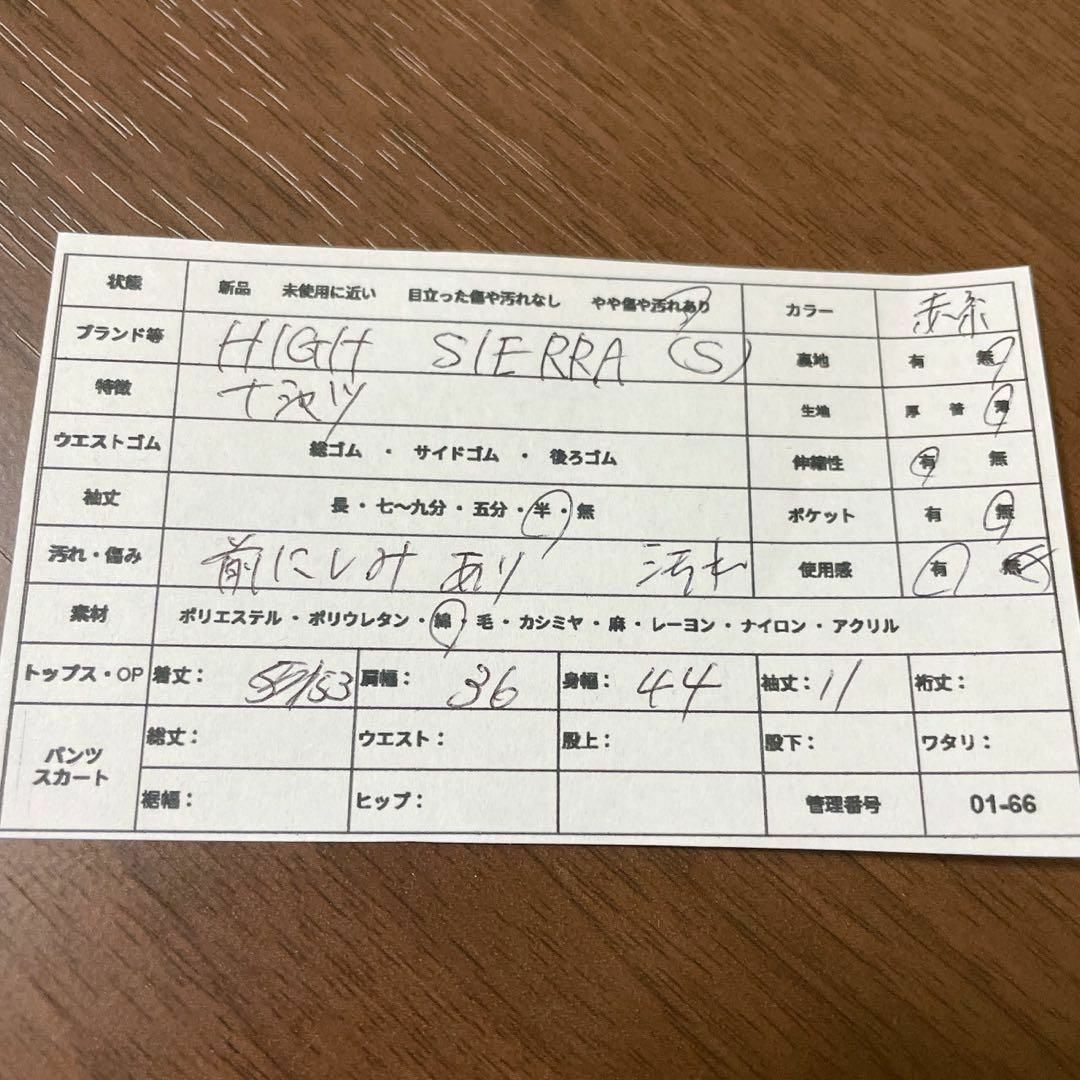 状態 新品 未使用に近い 目立った傷や汚れなし やや傷や汚れあり カラー 赤系
ブランド等 HIGH SIERRA (S) 裏地 有 無
特徴 Tシャツ 生地 厚 普 薄
ウエストゴム 総ゴム ・ サイドゴム ・ 後ろゴム 伸縮性 有 無
袖丈 長・七〜九分・五分・半・無 ポケット 有 無
汚れ・傷み 前にしみあり 汚れ 使用感 有 無
素材 ポリエステル・ポリウレタン・綿・毛・カシミヤ・麻・レーヨン・ナイロン・アクリル
トップス・OP 着丈: 53 肩幅: 36 身幅: 44 袖丈: 11 裄丈:
パンツ スカート 総丈: ウエスト: 股上: 股下: ワタリ:
裾幅: ヒップ: 管理番号 01-66